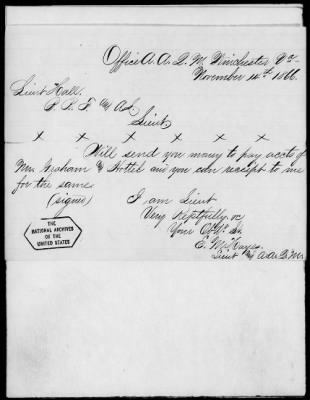 Office A. A. Q. M. Winchester Va-
November 14th 1866.
Lieut Hall.
Lieut,
x x x x x x
Will send you money to pay accts of
Mrs. Graham & Hotel and you can receipt to me
for the same
(signed) I am Lieut
Very Respectfully &c
Your Obt St.
E. M. Hayes.
Lieut & A.A.Q.M.
THE
NATIONAL ARCHIVES
OF THE
UNITED STATES